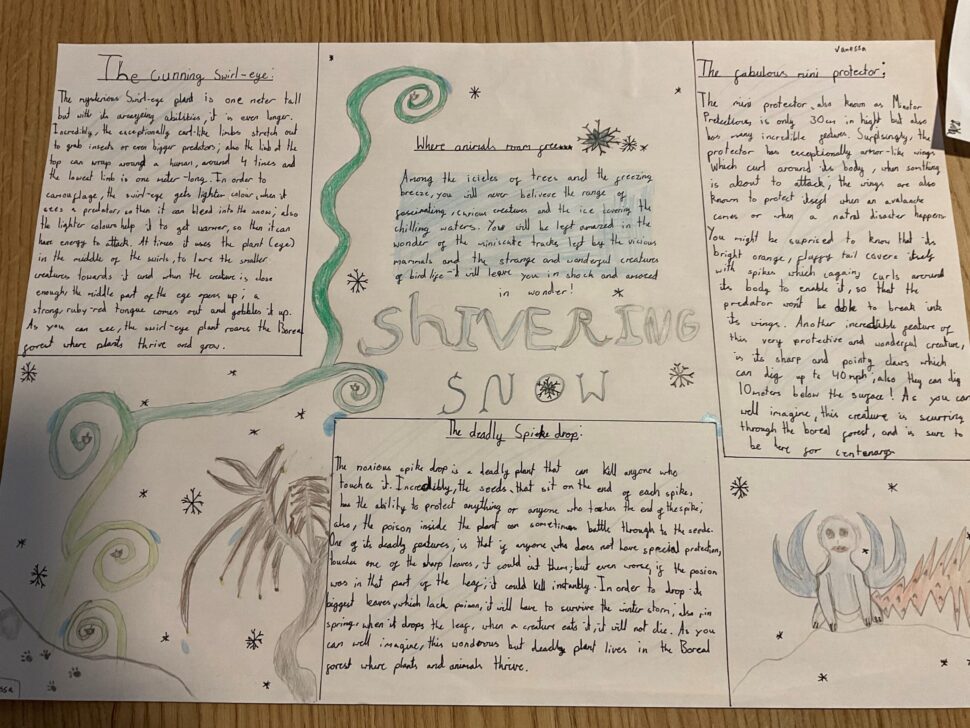 The Cunning Swirl-eye:
The mysterious Swirl-eye plant is one meter tall
but with its annoying abilities, it is even longer.
Incredibly, the exceptionally curl-like limbs stretch out
to grab insects or even bigger predators; also the limb at the
top can wrap around a human, around 4 times and
the lowest limb is one meter-long. In order to
camoflage, the swirl-eye gets lighter colour, when it
sees a predator, so then it can blend into the snow; also
the lighter colours help it to get warmer, so then it can
have energy to attack. At times it uses the plant (eye)
in the middle of the swirls, to lure the smaller
creatures towards it and when the creature is close
enough, the middle part of the eye opens up; a
strong, ruby-red tongue comes out and gobbles it up.
As you can see, the swirl-eye plant roams the Boreal
forest where plants thrive and grow.
Where animals roam
Among the icicles of trees and the freezing
breeze, you will never believe the range of
fascinating, curious creatures and the ice covering the
chilling waters. You will be left amazed in the
wonder of the miniscule tracks left by the vicious
mammals and the strange and wonderful creatures
of bird life - it will leave you in shock and amazed
in wonder!
SHIVERING
SNOW
The deadly Spike drop:
The noxious spike drop is a deadly plant that can kill anyone who
touches it. Incredibly, the seeds, that sit on the end of each spike,
has the ability to protect anything or anyone who touches the end of the spike;
also, the poison inside the plant can sometimes battle through to the seeds.
One of its deadly features, is that if anyone, who does not have special protection,
touches one of the sharp leaves, it could cut them; but even worse, if the posion
was in that part of the leaf, it could kill instantly. In order to drop its
biggest leaves, which lack poison, it will have to survive the winter storm; also, in
spring, when it drops the leaf, when a creature eats it, it will not die. As you
can well imagine, this wonderous but deadly plant lives in the Boreal
forest where plants and animals thrive.
Vanessa
The fabulous mini protector:
The mini protector, also known as
is only 30cm in hight but also
has many incredible features. Surpsingly, the
protector has exceptionally armor-like wings
which curl around its body, when somthing
is about to attack; the wings are also
known to protect itself when an avalanche
comes or when a natral disaster happens.
You might be suprised to know that its
bright orange, fluffy tail covers itself
with spikes which (again) curls around
its body to enable it, so that the
predator won't be able to break into
its wings. Another incredible feature of
this very protective and wonderful creature,
is its sharp and pointy claws which
can dig up to 40mph; also they can dig
10 meters below the surface! As you can
well imagine, this creature is scurring
through the boreal forest, and is sure to
be here for
ssa